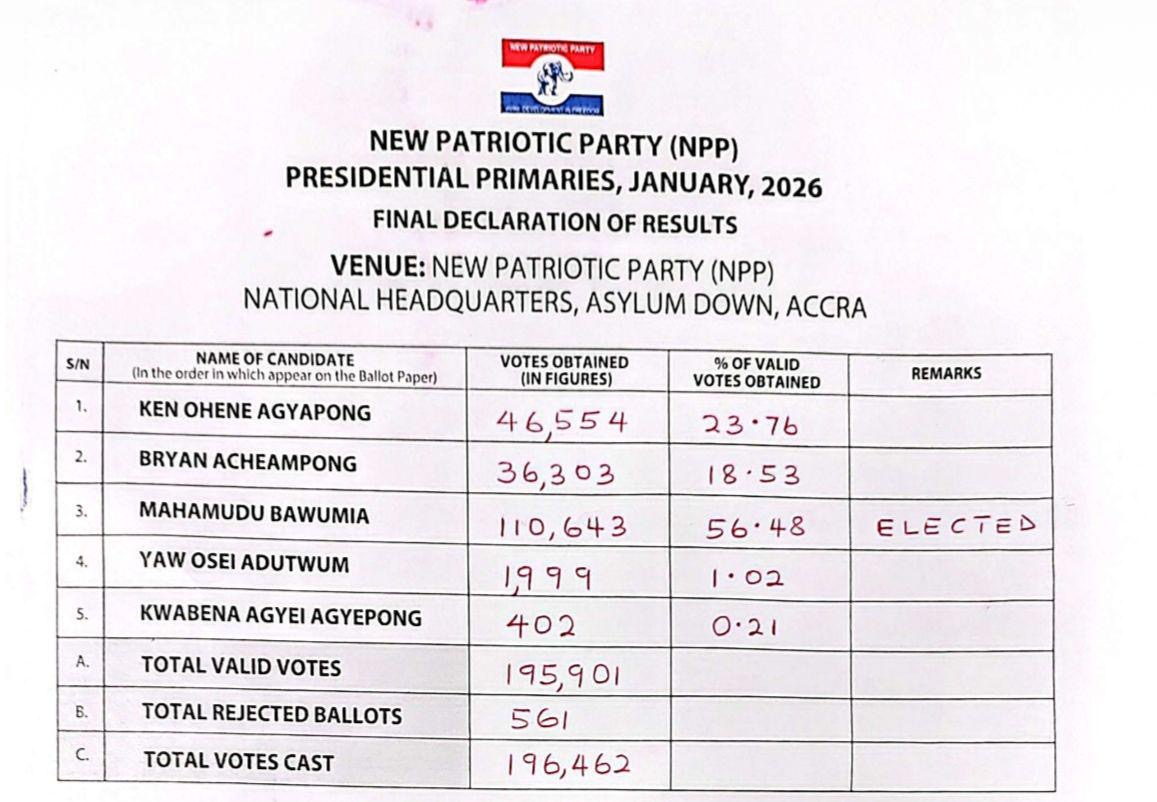 NEW PATRIOTIC PARTY
NEW PATRIOTIC PARTY (NPP)
PRESIDENTIAL PRIMARIES, JANUARY, 2026
FINAL DECLARATION OF RESULTS
VENUE: NEW PATRIOTIC PARTY (NPP)
NATIONAL HEADQUARTERS, ASYLUM DOWN, ACCRA
S/N NAME OF CANDIDATE (In the order in which appear on the Ballot Paper) VOTES OBTAINED (IN FIGURES) % OF VALID VOTES OBTAINED REMARKS
1. KEN OHENE AGYAPONG 46,554 23.76
2. BRYAN ACHEAMPONG 36,303 18.53
3. MAHAMUDU BAWUMIA 110,643 56.48 ELECTED
4. YAW OSEI ADUTWUM 1,999 1.02
5. KWABENA AGYEI AGYEPONG 402 0.21
A. TOTAL VALID VOTES 195,901
B. TOTAL REJECTED BALLOTS 561
C. TOTAL VOTES CAST 196,462